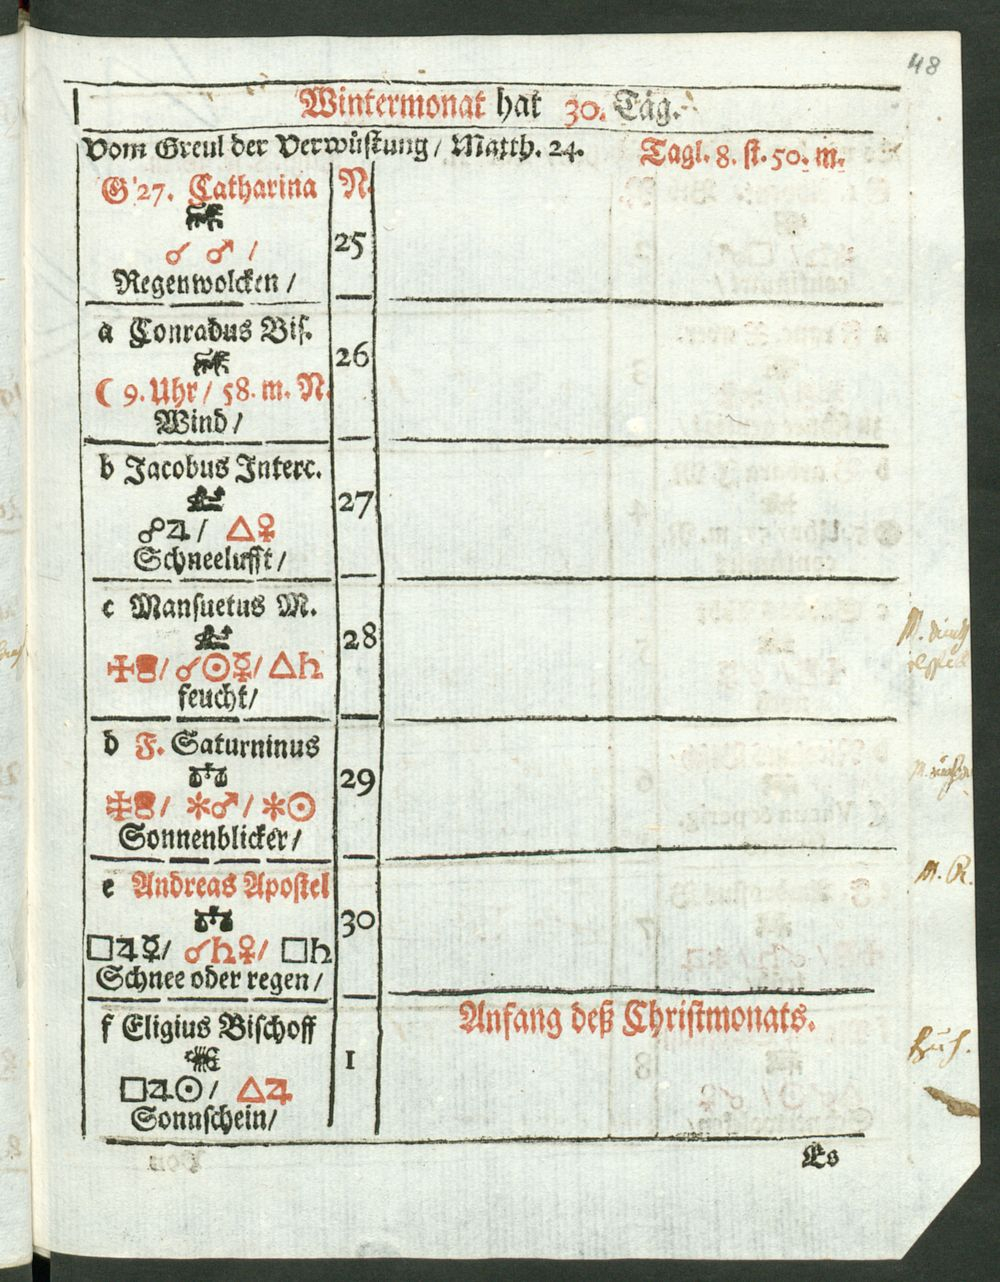 48
Wintermonat hat 30. Täg.
Vom Greul der Verwüstung / Matth. 24. Tagl. 8. st. 50. m.
G 27. Catharina N.
☌ ♂ / 25
Regenwolcken /
a Conradus Bis.
26
☾ 9. Uhr / 58. m. N.
Wind /
b Jacobus Interc.
27
☍♃ / △♀
Schneelufft /
c Mansuetus M.
28
/ ☌☉☿ / △♄
feucht /
d F. Saturninus
29
/ ✱♂ / ✱☉
Sonnenblicker /
e Andreas Apostel
30
□♃☿ / ☌♄♀ / □♄
Schnee oder regen /
Anfang deß Christmonats.
f Eligius Bischoff
1
□♃☉ / △♃
Sonnschein /
Es
M. R.